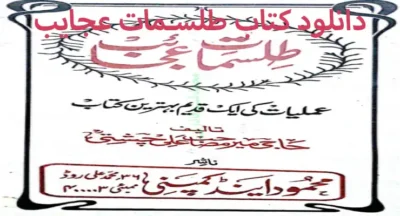 دانلود کتاب طلسمات عجایب
طلسمات عجائب
عملیات کی ایک قدیم بہترین کتاب
تالیف
ناشر
محمود اینڈ کمپنی
محمد علی روڈ
ممبئی ۴۰۰۰۰۳